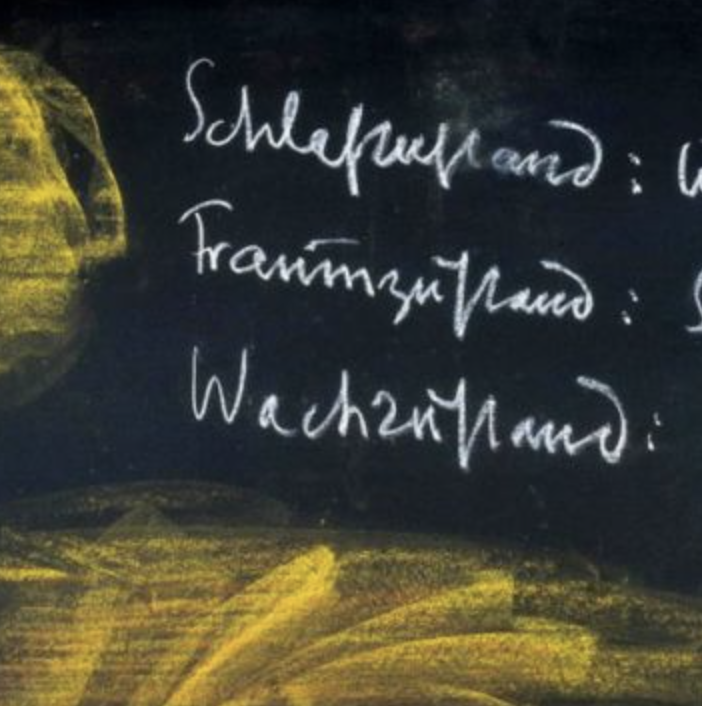 Schlafzustand:
Traumzustand:
Wachzustand: